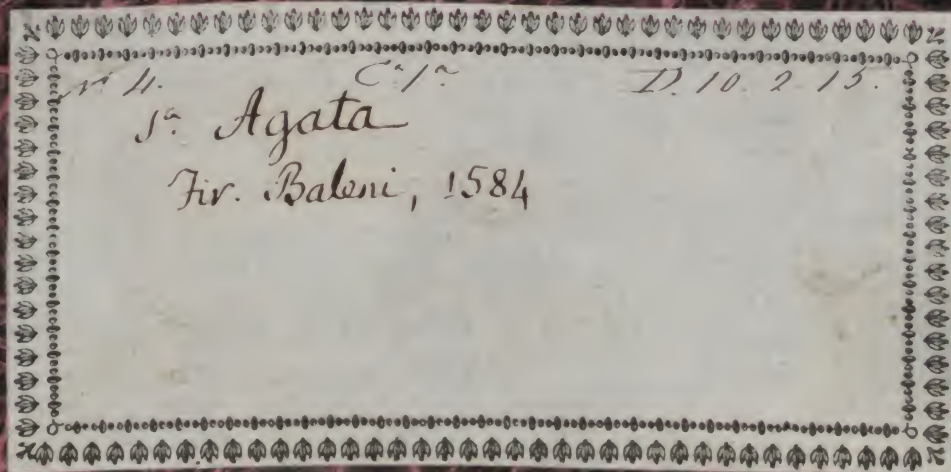 nº 4. Cª 1ª D. 10. 2. 15.
Sª Agata
Fir. Baleni, 1584